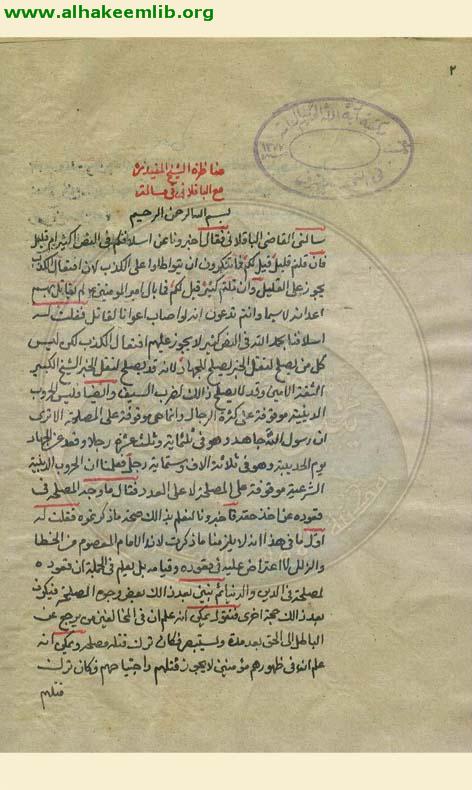 www.alhakeemlib.org
٢
مناظرة الشيخ المفيد
مع الباقلاني في مسألة
بسم الله الرحمن الرحيم
سألني القاضي الباقلاني فقال اخبرونا عن اسلافكم في النص كثير ام قليل
فان قلتم قليل قيل لكم فما تنكرون ان يتواطأوا على الكذب لان افتعال الكذب
يجوز على القليل وان قلتم كثير قيل لكم فما بال امير المؤمنين لم يقاتل بهم
اعدائه لاسيما وانتم تدعون انه لو اصاب اعوانا لقاتل فقلت له
اسلافنا بحمد الله في النص كثير لا يجوز عليهم افتعال الكذب لكن ليس
كل من يصلح لنقل الخبر يصلح للجهاد لانه قد يصلح لنقل الخبر الشيخ الكبير
الثقة الامين وقد لا يصلح ذلك لضرب السيف وايضا فليس الحروب
الدينية موقوفة على كثرة الرجال وانما هي موقوفة على المصلحة الا ترى
ان رسول الله جاهد وهو في ثلثمائة وثلثة عشر رجلا وقعد عن الجهاد
يوم الحديبية وهو في ثلاثة الاف وستمائة رجل فعلمنا ان الحروب الدينية
الشرعية موقوفة على المصلحة لا على العدد فقال ما وجه المصلحة في
قعوده عن اخذ حقه فاخبرونا لنعلم بذلك صحة ما ذكرتموه فقلت له
اول ما في هذا انه لا يلزمنا ما ذكرت لانه الامام المعصوم من الخطا
والزلل لا اعتراض عليه في قعوده وقيامه بل نعلم في الجملة ان قعوده
لمصلحة في الدين والدنيا ثم نبين بعد ذلك بعض وجوه المصلحة فيكون
بعد ذلك حجة اخرى فنقول يمكن انه علم ان في المخالفين من يرجع عن
الباطل الى الحق بعد مدة ويستبصر فكان ترك قتله مصلحة ويمكن انه
علم انه في ظهورهم مؤمنين لا يجوز قتلهم واجتياحهم فكان ترك
قتلهم